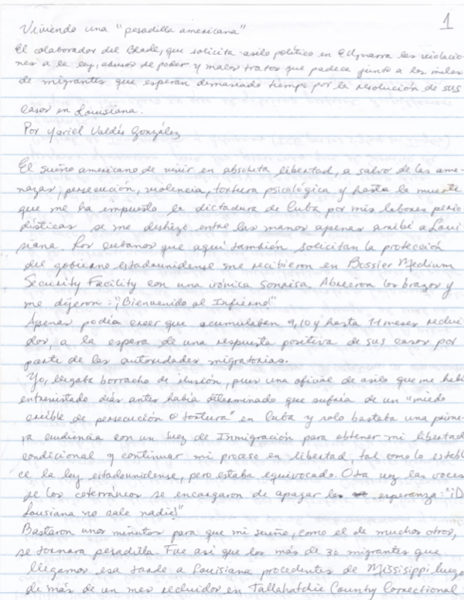 1
Viviendo una "pesadilla americana"
El colaborador del Blade, que solicita asilo político en EU, narra las violacio-
nes a la ley, abusos de poder y malos tratos que padece junto a los miles
de migrantes que esperan demasiado tiempo por la resolución de sus
casos en Louisiana.
Por Yariel Valdés González
El sueño americano de vivir en absoluta libertad, a salvo de las ame-
nazas, persecución, violencia, tortura psicológica y hasta la muerte
que me ha impuesto la dictadura de Cuba por mis labores perio-
dísticas se me deshizo entre las manos apenas arribé a Loui-
siana. Los cubanos que aquí también solicitan la protección
del gobierno estadounidense me recibieron en Bossier Medium
Security Facility con una irónica sonrisa. Abrieron los brazos y
me dijeron: "¡Bienvenido al Infierno"
Apenas podía creer que acumulaban 9, 10 y hasta 11 meses reclui-
dos, a la espera de una respuesta positiva de sus casos por
parte de las autoridades migratorias.
Yo, llegaba borracho de ilusión, pues una oficial de asilo que me había
entrevistado días antes había determinado que sufría de un "miedo
creíble de persecución o tortura" en Cuba y solo bastaba una prime-
ra audiencia con un Juez de Inmigración para obtener mi libertad
condicional y continuar mi proceso en libertad, tal como lo estable-
ce la ley estadounidense, pero estaba equivocado. Otra vez las voces
de los coterráneos se encargaron de apagar la esperanza: "¡De
Louisiana no sale nadie!"
Bastaron unos minutos para que mi sueño, como el de muchos otros,
se tornara pesadilla. Fue así que los más de 30 migrantes que
llegamos esa tarde a Louisiana procedentes de Mississippi luego
de más de un mes recluidos en Tallahatchie County Correctional